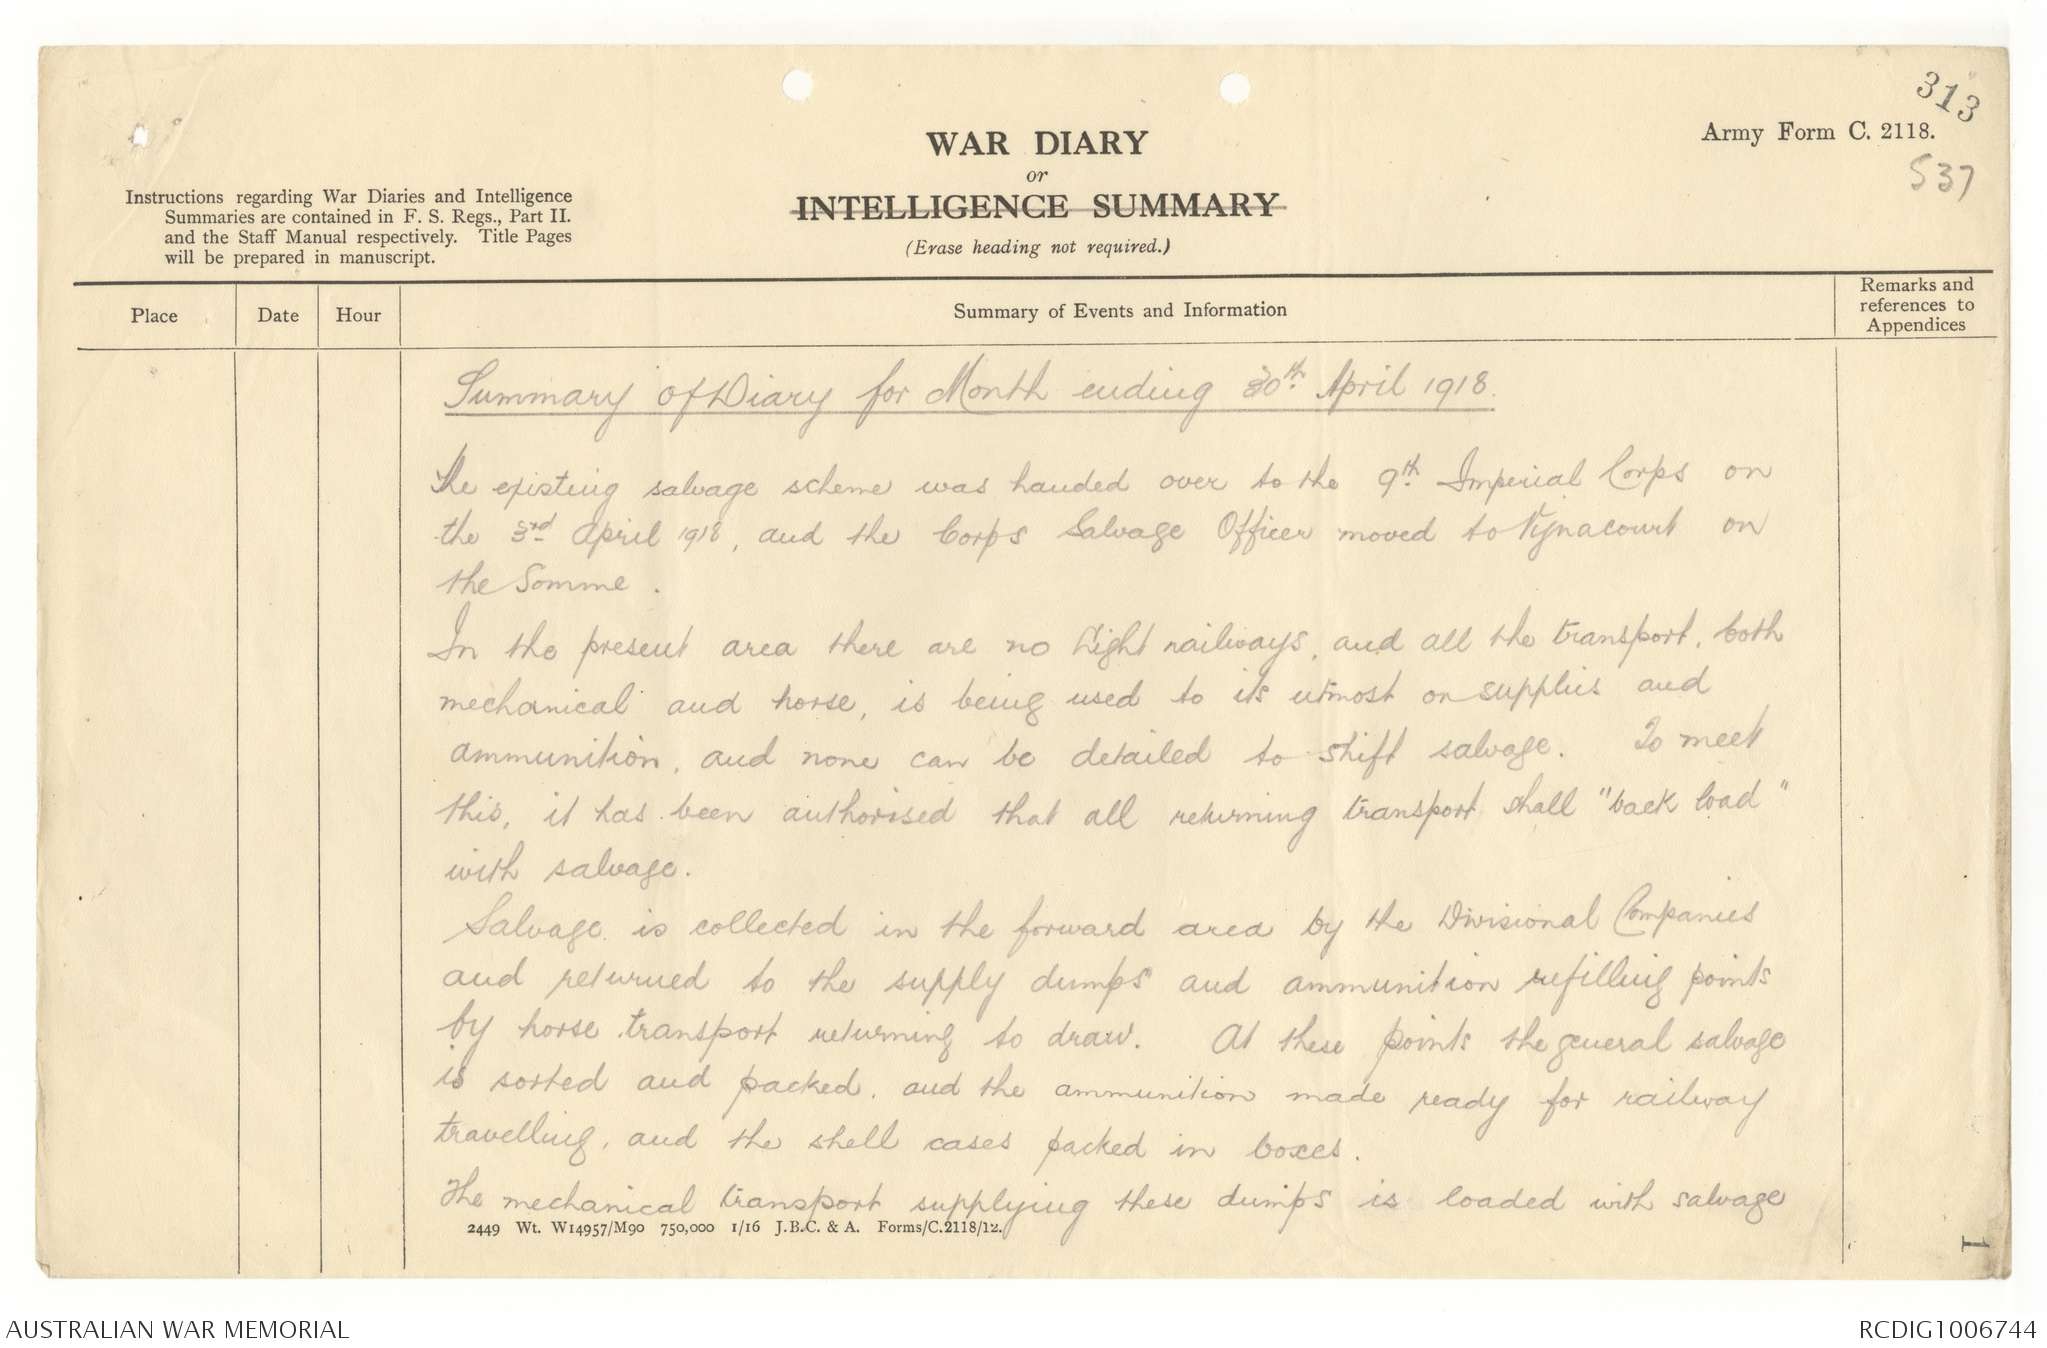 313
Army Form C. 2118.
537
WAR DIARY
or
INTELLIGENCE SUMMARY
(Erase heading not required.)
Instructions regarding War Diaries and Intelligence
Summaries are contained in F. S. Regs., Part II.
and the Staff Manual respectively. Title Pages
will be prepared in manuscript.
Place
Date
Hour
Summary of Events and Information
Remarks and
references to
Appendices
Summary of Diary for Month ending 30th April 1918.
The existing salvage scheme was handed over to the 9th Imperial Corps on
the 3rd April 1918, and the Corps Salvage Officer moved to Vignacourt on
the Somme.
In the present area there are no light railways, and all the transport, both
mechanical and horse, is being used to its utmost on supplies and
ammunition, and none can be detailed to shift salvage. To meet
this, it has been authorised that all returning transport shall "back load"
with salvage.
Salvage is collected in the forward area by the Divisional Companies
and returned to the supply dumps and ammunition refilling points
by horse transport returning to draw. At these points the general salvage
is sorted and packed, and the ammunition made ready for railway
travelling, and the shell cases packed in boxes.
The mechanical transport supplying these dumps is loaded with salvage
2449 Wt. W14957/M90 750,000 1/16 J.B.C. & A. Forms/C.2118/12.
1
AUSTRALIAN WAR MEMORIAL
RCDIG1006744